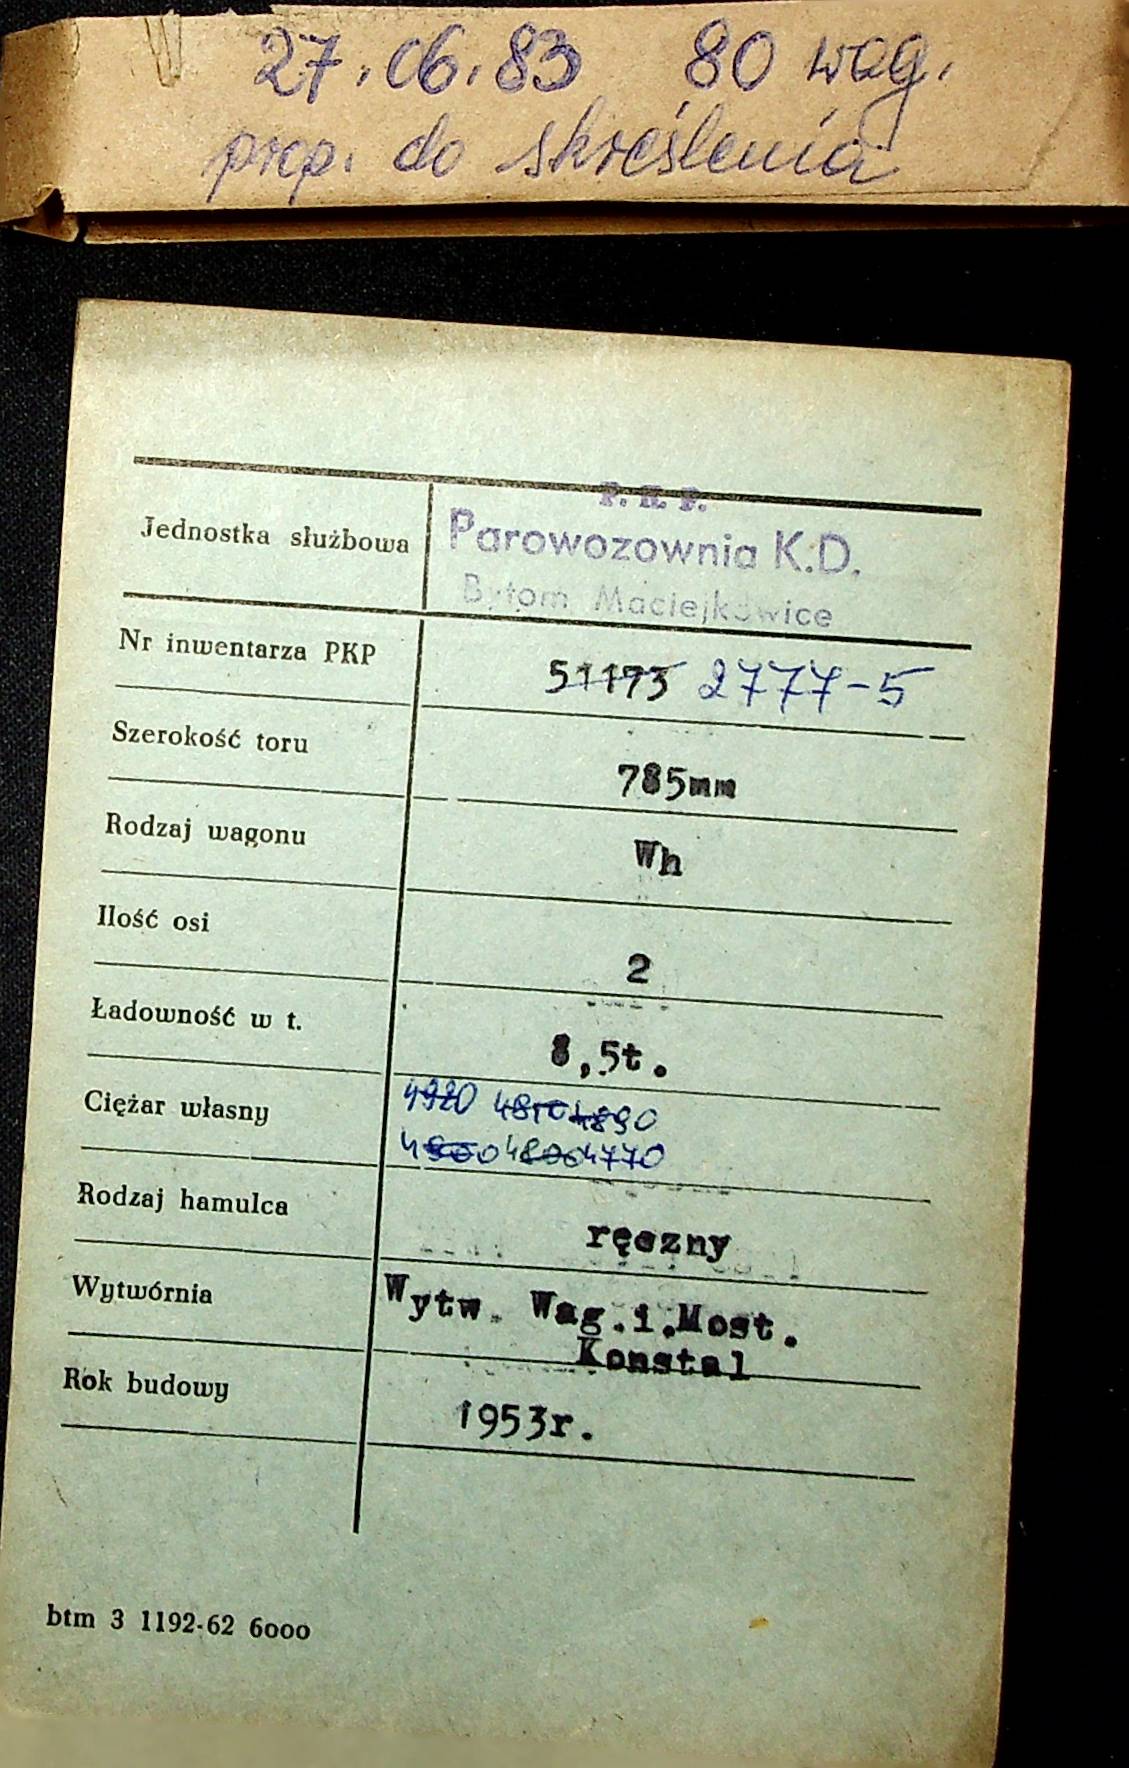 27.06.83 80 wag.
prop. do skreślenia
P. K. P.
Jednostka służbowa Parowozownia K.D.
Bytom Maciejkowice
Nr inwentarza PKP 51173 2777-5
Szerokość toru 785mm
Rodzaj wagonu Wh
Ilość osi 2
Ładowność w t. 8,5t.
Ciężar własny 4920 4810 4890
4800 4800 4770
Rodzaj hamulca ręczny
Wytwórnia Wytw. Wag.i.Most.
Konstal
Rok budowy 1953r.
btm 3 1192-62 6000